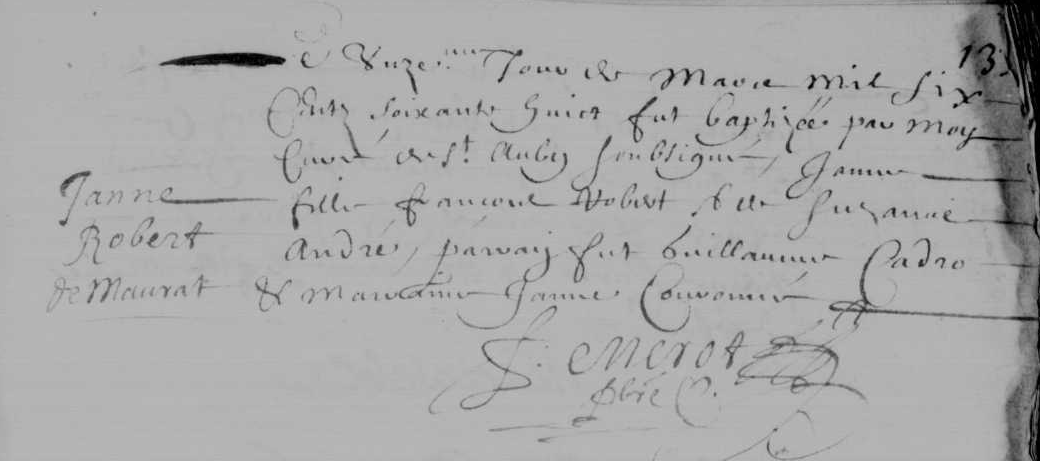 13
Le Unze.me Jour de Mars mil six
Cents soixante huict fut baptizée par moy
Curé de St Aubin soubsigné, Janne
fille francois Robert & de Suzanne
André, parrain fut Guillaume Cadro
& marraine Janne Couronné
Janne
Robert
de Maurat
Merot
pbre C.